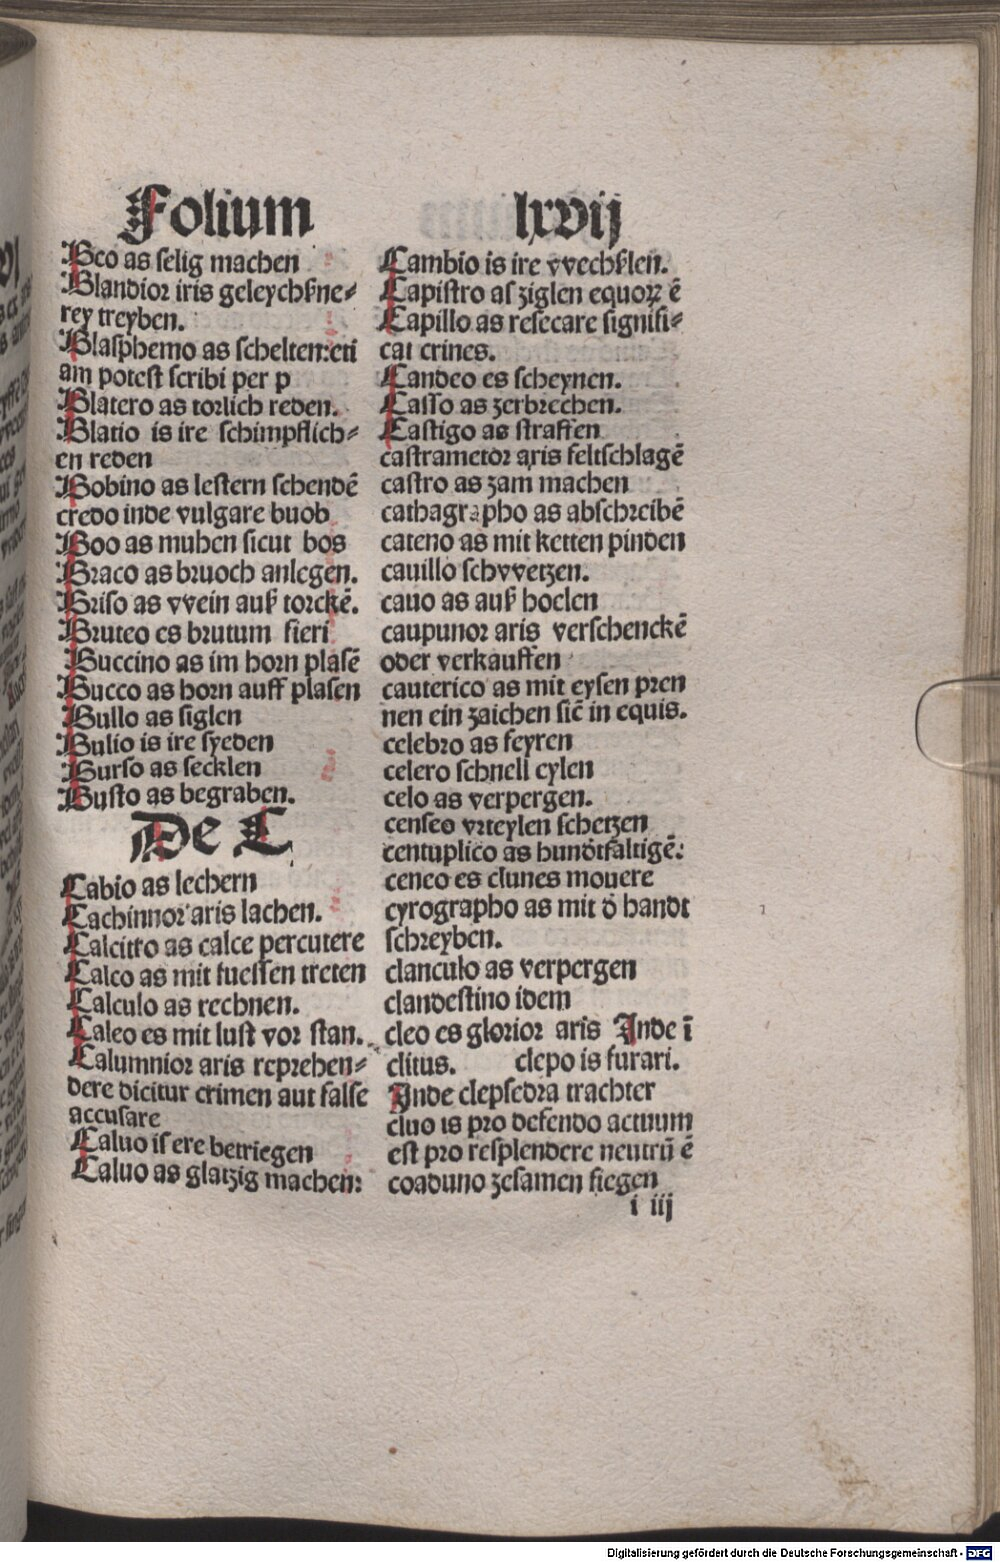 Folium lxvij
Beo as selig machen
Blandior iris geleychßne-
rey treyben.
Blasphemo as schelten:eti
am potest scribi per p
Blatero as torlich reden.
Blatio is ire schimpflich-
en reden
Bobino as lestern schendē
credo inde vulgare buob
Boo as muhen sicut bos
Braco as bruoch anlegen.
Briso as vvein auß torckē.
Bruteo es brutum fieri
Buccino as im horn plasē
Bucco as horn auff plasen
Bullo as siglen
Bulio is ire syeden
Burso as secklen
Busto as begraben.
De C
Cabio as lechern
Cachinnor aris lachen.
Calcitro as calce percutere
Calco as mit fuessen treten
Calculo as rechnen.
Caleo es mit lust vor stan.
Calumnior aris reprehen-
dere dicitur crimen aut false
accusare
Caluo is ere betriegen
Caluo as glatzig machen:
Cambio is ire vvechßlen.
Capistro as ziglen equoꝝ ē
Capillo as resecare signifi-
cat crines.
Candeo es scheynen.
Casso as zerbrechen.
Castigo as straffen
castrametor aris feltschlagē
castro as zam machen
cathagrapho as abschreibē
cateno as mit ketten pinden
cauillo schvvetzen.
cauo as auß hoelen
caupunor aris verschenckē
oder verkauffen
cauterico as mit eysen pren
nen ein zaichen sic̄ in equis.
celebro as feyren
celero schnell eylen
celo as verpergen.
censeo vrteylen schetzen
centuplico as hundt̄faltigē:
ceneo es clunes mouere
cyrographo as mit d̄ handt
schreyben.
clanculo as verpergen
clandestino idem
cleo es glorior aris Inde ī
clitus. clepo is furari.
Inde clepsedra trachter
cluo is pro defendo actiuum
est pro resplendere neutrū ē
coaduno zesamen fiegen
i iij
Digitalisierung gefördert durch die Deutsche Forschungsgemeinschaft - DFG